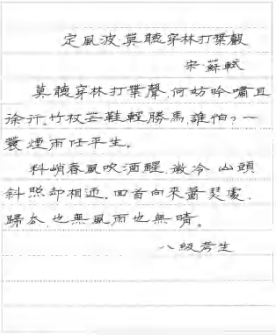 定風波·莫聽穿林打葉聲
宋·蘇軾
莫聽穿林打葉聲,何妨吟嘯且
徐行。竹杖芒鞋輕勝馬,誰怕?一
蓑煙雨任平生。
料峭春風吹酒醒,微冷,山頭
斜照卻相迎。回首向來蕭瑟處,
歸去,也無風雨也無晴。
八級考生